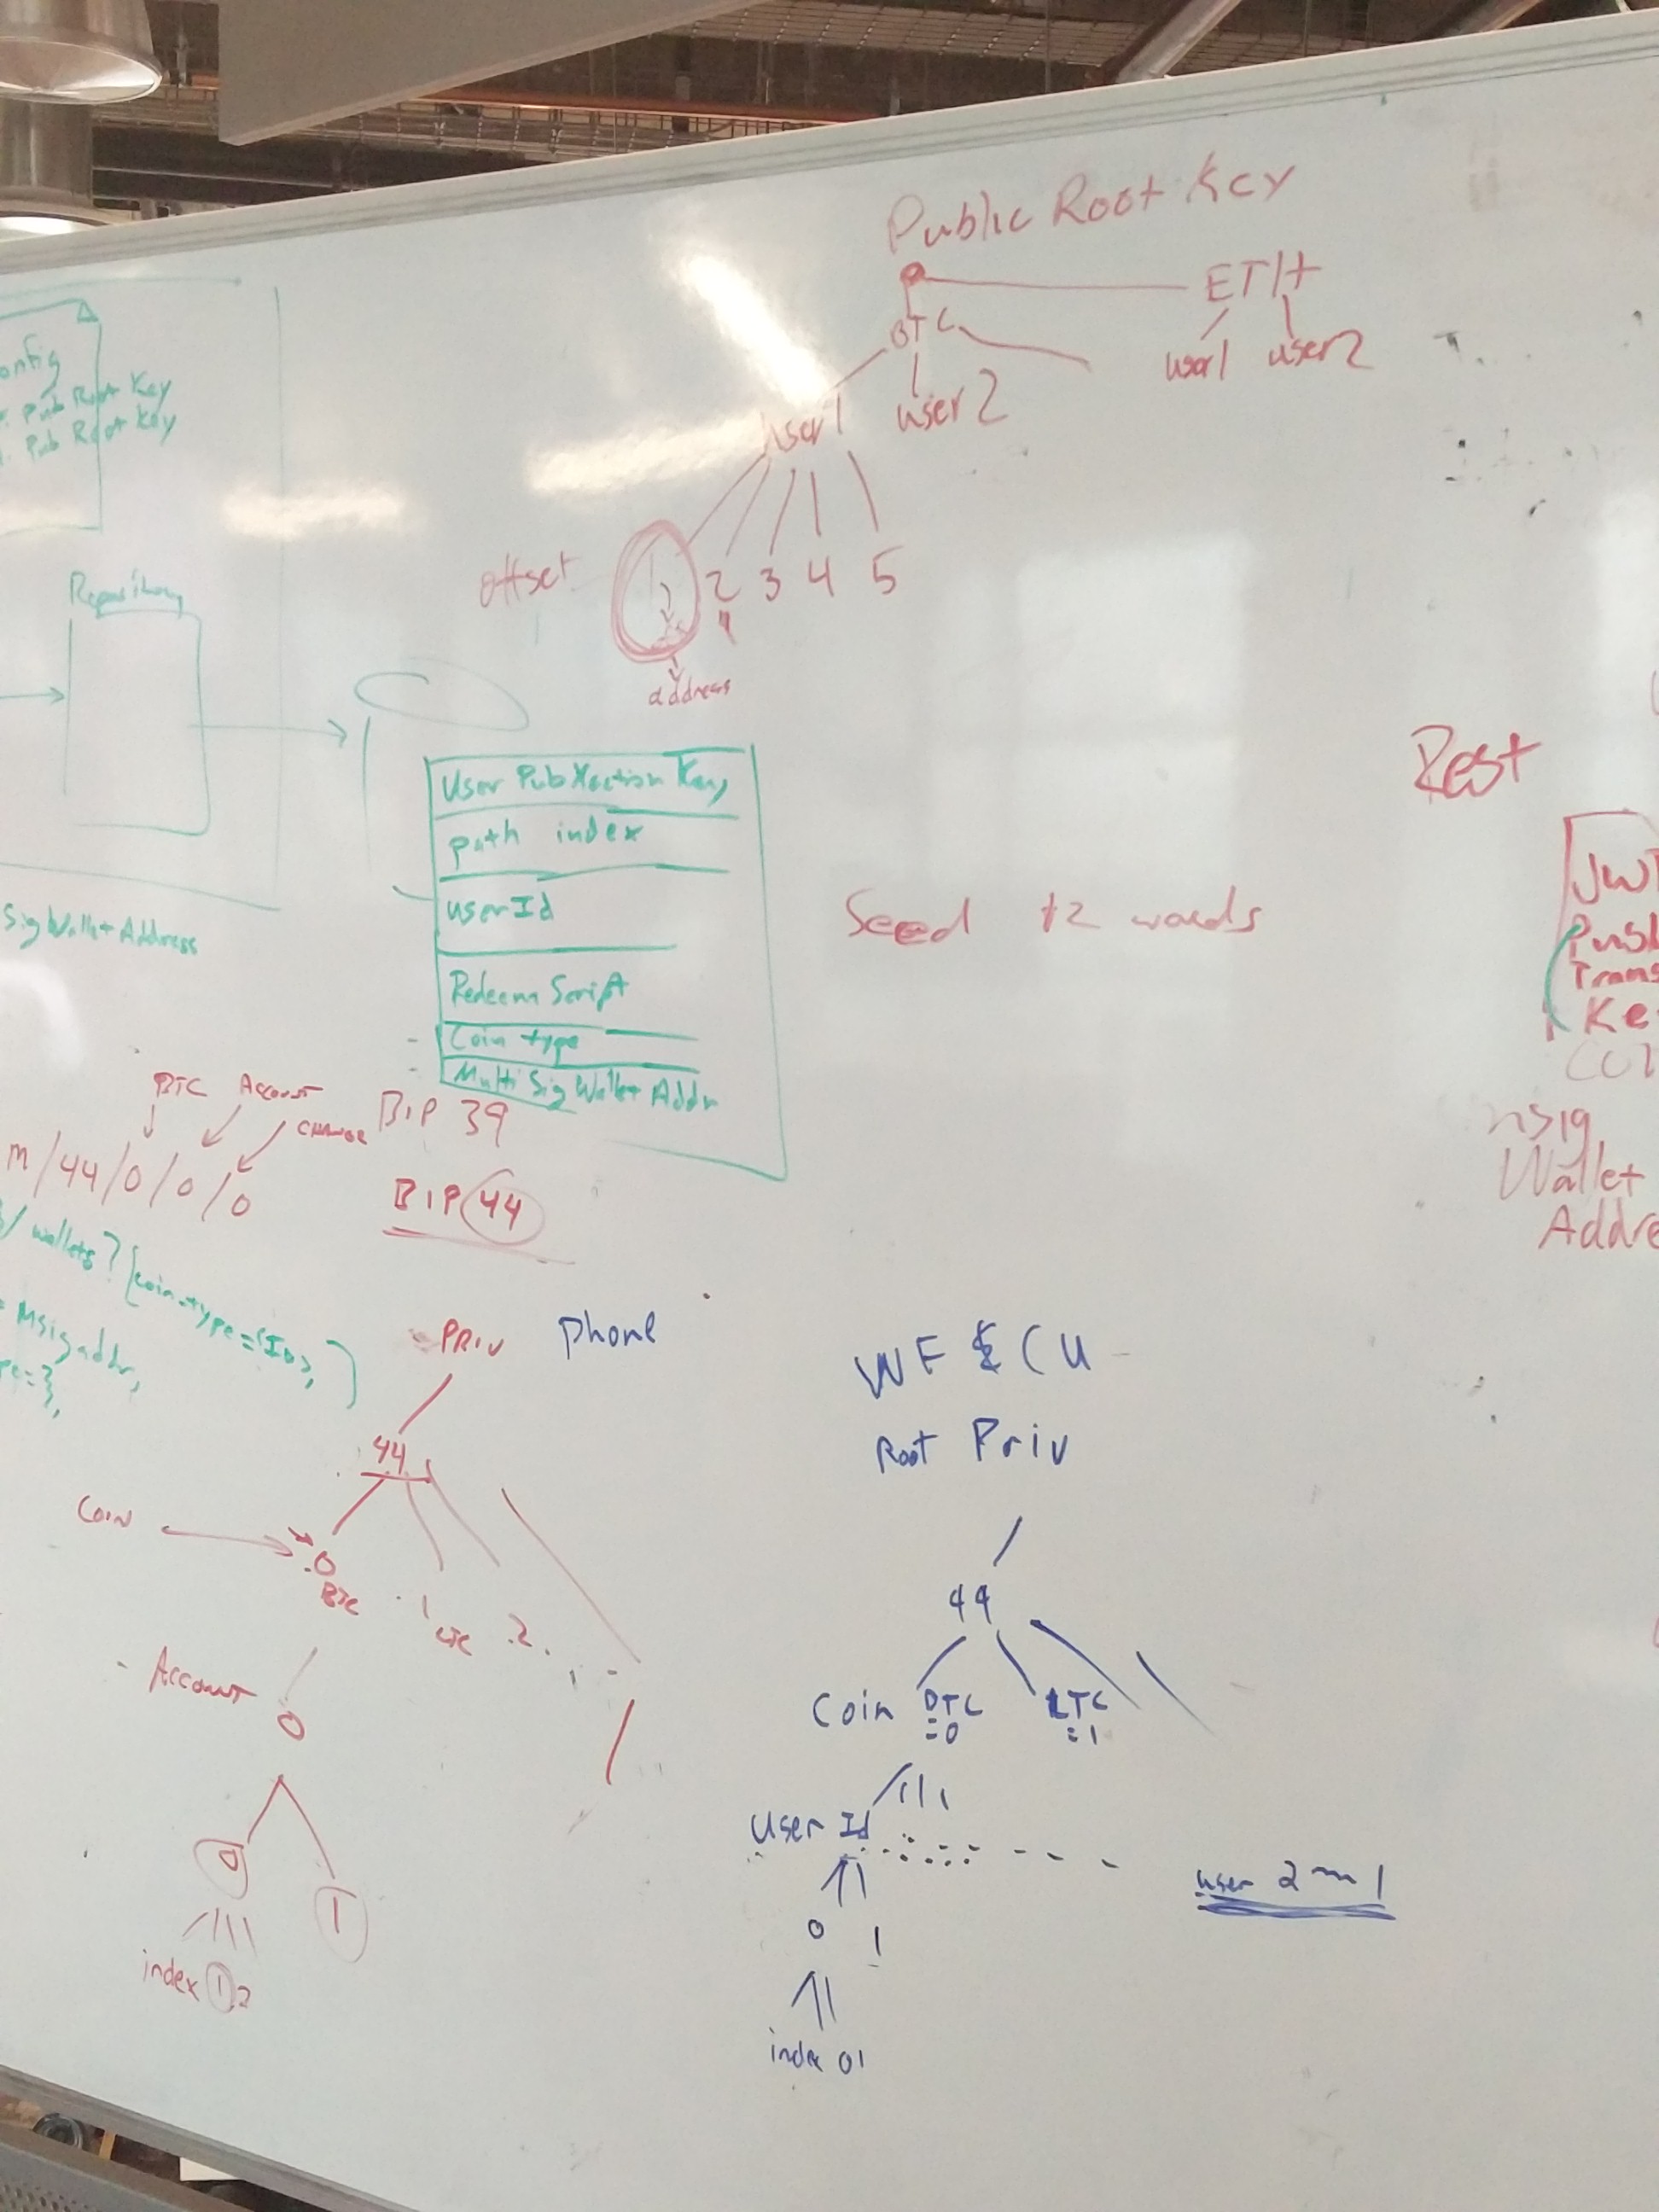 Public Root Key
ETH
BTC
user1 user2
user1 user2
offset 1 2 3 4 5
address
onfig
Pub Root Key
Pub Root Key
Repository
User Pub Xaction Key
path index
userId
Redeem Script
Coin type
MultiSig Wallet Addr
Sig Wallet Address
Seed 12 words
Rest
JWT
Publ
Trans
Ke
nsig
Wallet
Addre
BTC Account
CHANGE
m/44/0/0/0
BIP 39
BIP 44
/ wallets? {coin-type=<ID>,
Msig addr,
pe=},
PRIV Phone
44
COIN
0 1 2
BTC LTC
Account
0
0 1
index 1 2
WF & CU
Root Priv
44
Coin BTC LTC
=0 =1
User Id
user 2 m 1
0 1
index 01